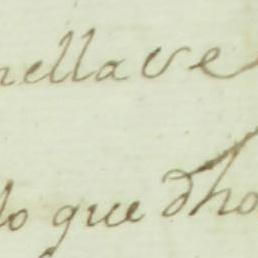 nella ve
lo que dho